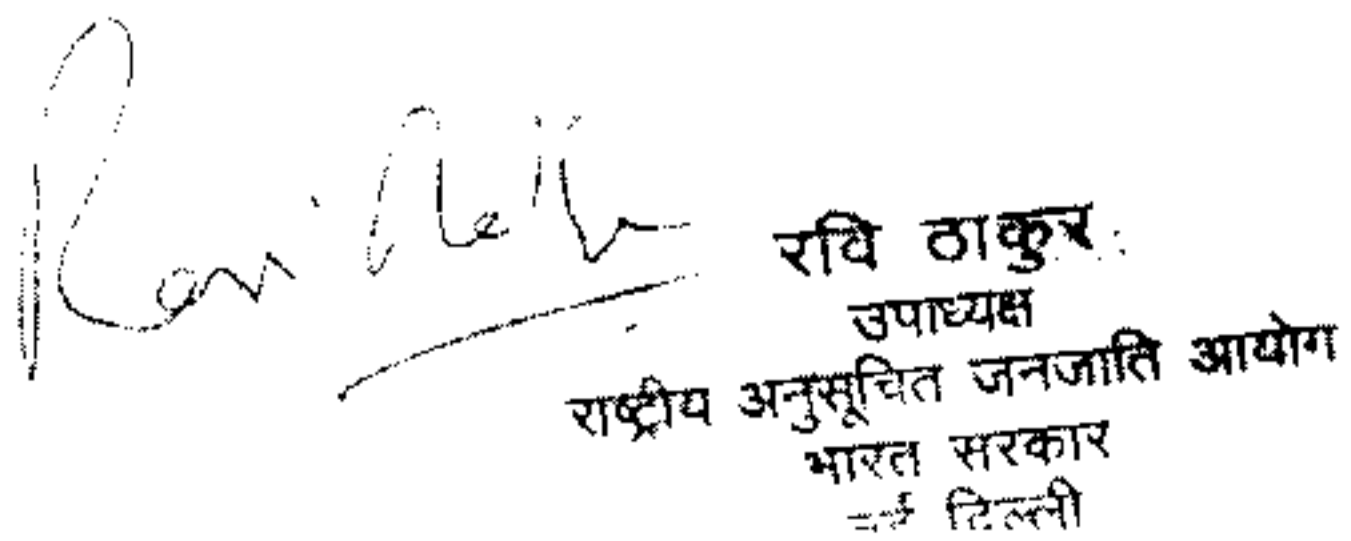 Ravi
रवि ठाकुर
उपाध्यक्ष
राष्ट्रीय अनुसूचित जनजाति आयोग
भारत सरकार
नई दिल्ली